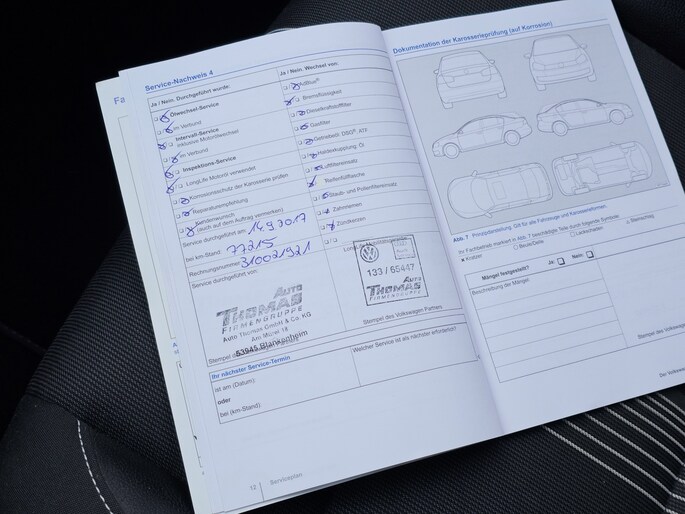 Fa
Service-Nachweis 4
Ja / Nein. Durchgeführt wurde:
Ölwechsel-Service
im Verbund
Intervall-Service
inklusive Motorölwechsel
im Verbund
Inspektions-Service
LongLife Motoröl verwendet
Korrosionsschutz der Karosserie prüfen
Reparaturempfehlung
Kundenwunsch
(auch dem Auftrag vermerken)
Service durchgeführt am: 14.9.2017
bei km-Stand: 77215
Rechnungsnummer: 310021921
Service durchgeführt von:
Auto
THOMAS
FIRMENGRUPPE
Auto Thomas GmbH & Co. KG
Am Mürel 18
53945 Blankenheim
Stempel des
Ja / Nein. Wechsel von:
AdBlue®
Bremsflüssigkeit
Dieselkraftstofffilter
Gasfilter
Getriebeöl: DSG®, ATF
Haldexkupplung, Öl
Luftfiltereinsatz
Reifenfüllflasche
Staub- und Pollenfiltereinsatz
Zahnriemen
Zündkerzen
133 / 65447
Auto
THOMAS
FIRMENGRUPPE
Stempel des Volkswagen Partners
Ihr nächster Service-Termin
ist am (Datum):
oder
bei (km-Stand):
Welcher Service ist als nächster erforderlich?
12 Serviceplan
Dokumentation der Karosserieprüfung (auf Korrosion)
Abb. 7 Prinzipdarstellung. Gilt für alle Fahrzeuge und Karosserieformen.
Ihr Fachbetrieb markiert in Abb. 7 beschädigte Teile durch folgende Symbole:
Kratzer
Beule/Delle
Lackschaden
Steinschlag
Mängel festgestellt? Ja: Nein:
Beschreibung der Mängel:
Stempel des Volkswagen
Der Volkswa